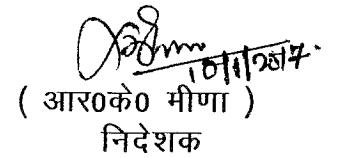 10/1/2017.
( आर0के0 मीणा )
निदेशक